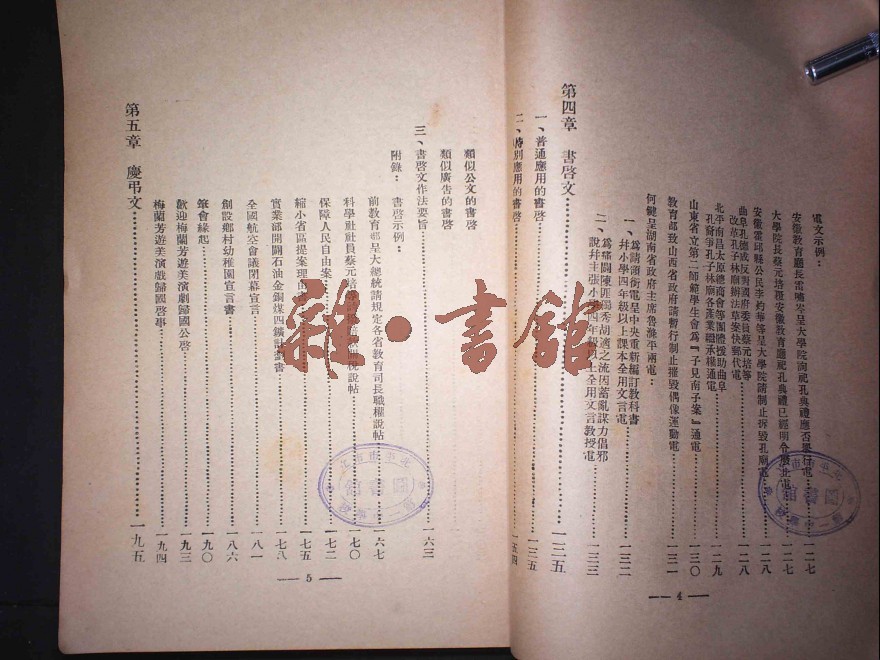 電文示例：
安徽教育廳長雷嘯岑呈大學院詢祀孔典禮應否舉行電……一二七
大學院長蔡元培覆安徽教育廳祀孔典禮已經明令廢止電……一二七
安徽霍邱縣公民李灼華等呈大學院請制止拆毀孔廟電……一二八
曲阜孔德成反對國府委員蔡元培等
改革孔子林廟辦法草案快郵代電……一二八
北平南昌太原總商會等團體援助曲阜
孔裔爭孔子林廟各產業繼承權通電……一二九
山東省立第二師範學生會爲『子見南子案』通電……一三〇
教育部致山西省政府請暫行制止摧毀偶像運動電……一三一
何鍵呈湖南省政府主席魯滌平兩電：
一、爲請領銜電呈中央重新編訂教科書
幷小學四年級以上課本全用文言電……一三二
二、爲痛闢陳匪獨秀胡適之流因蓄亂謀力倡邪
說幷主張小學四年級以上全用文言教授電……一三三
第四章 書啓文……一三五
一、普通應用的書啓……一三五
二、特別應用的書啓……一五四
— 4 —
類似公文的書啓
類似廣告的書啓
三、書啓文作法要旨……一六三
附錄：書啓示例：
前教育部呈大總統請規定各省教育司長職權說帖……一六七
科學社社員蔡元培等 關稅說帖……一七〇
保障人民自由案……一七二
縮小省區提案理由書……一七五
實業部開闢石油金銅煤四鑛計畫書……一七八
全國航空會議閉幕宣言……一八一
創設鄉村幼稚園宣言書……一八六
筆會緣起……一九〇
歡迎梅蘭芳遊美演劇歸國公啓……一九三
梅蘭芳遊美演戲歸國啓事……一九四
第五章 慶弔文……一九五
— 5 —
雜·書館
圖書館